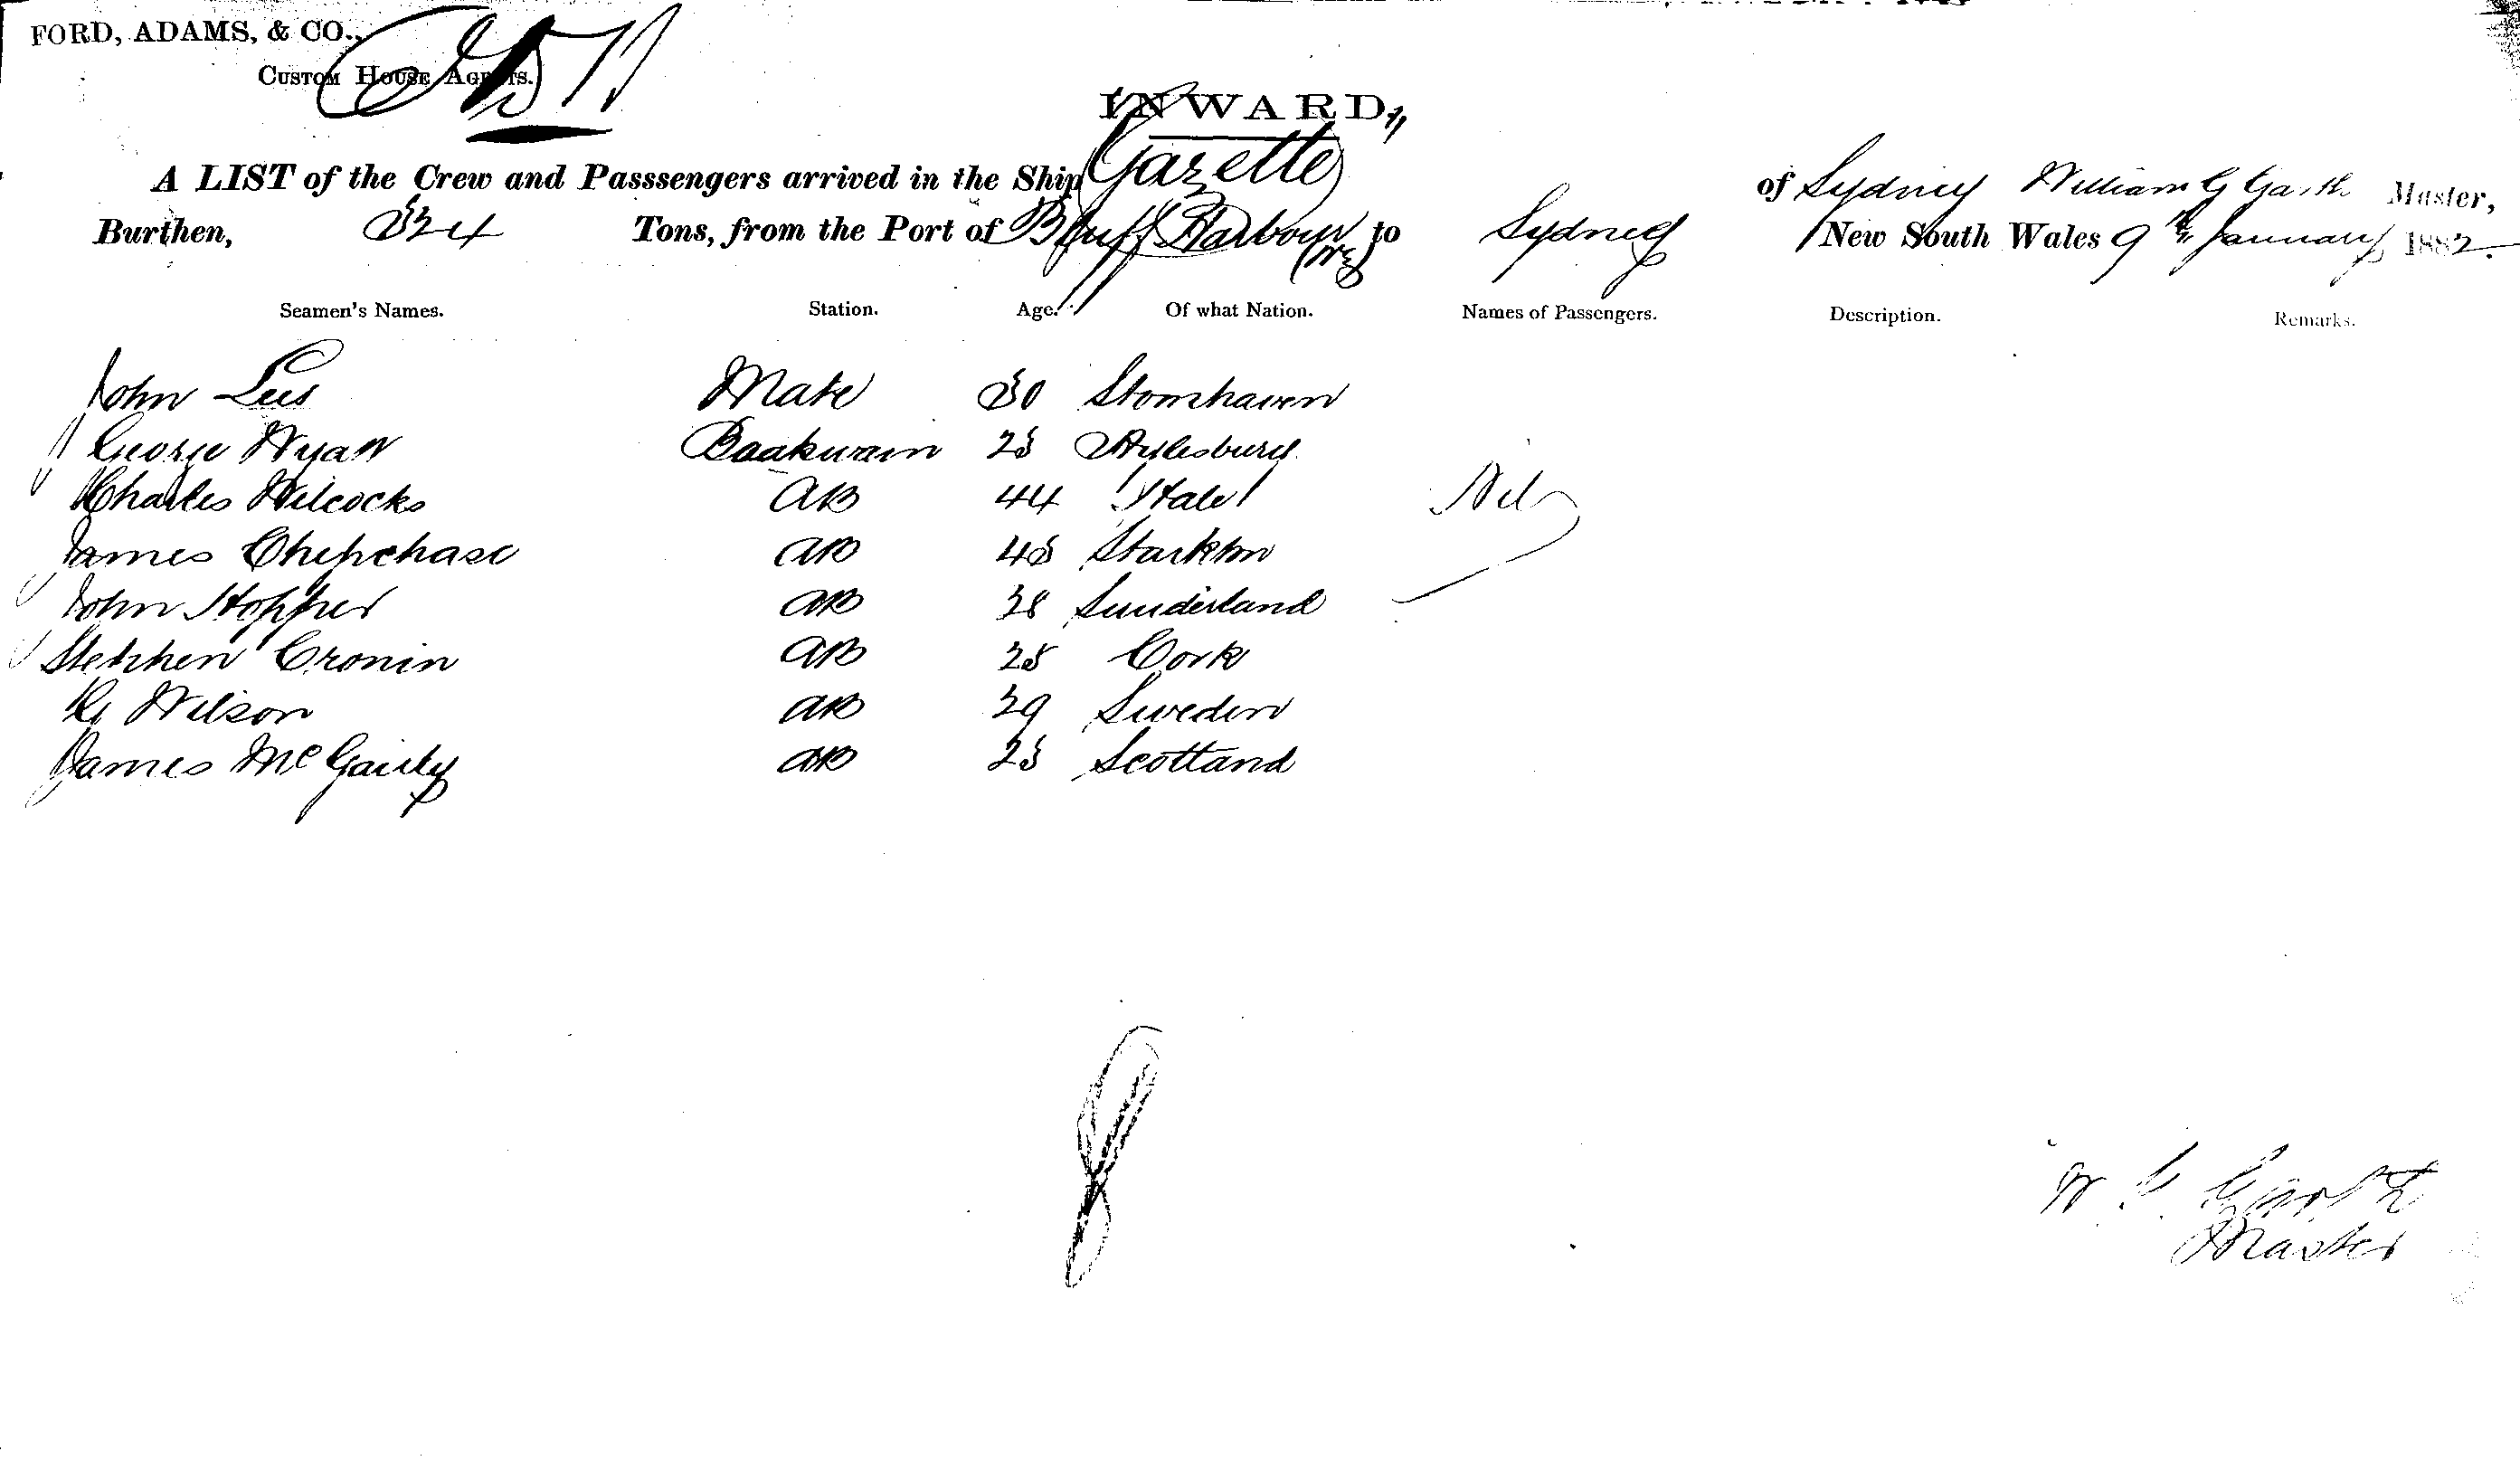 FORD, ADAMS, & CO.,
CUSTOM HOUSE AGENTS.
INWARD,
A LIST of the Crew and Passsengers arrived in the Ship Gazette of Sydney William G Garth Master,
Burthen, 324 Tons, from the Port of Bluff Harbour (NZ) to Sydney New South Wales 9th January 1882.
Seamen's Names. Station. Age. Of what Nation. Names of Passengers. Description. Remarks.
John Lees Mate 30 Stonhaven
George Wyatt 23 Aylesbury
Charles Wilcocks AB 44 Nil
James Chipchase AB 43 Stockton
John Hopper AB 38 Sunderland
Stephen Cronin AB 28 Cork
Wilson AB 39 Sweden
James AB 23 Scotland
8
W G Garth
Master